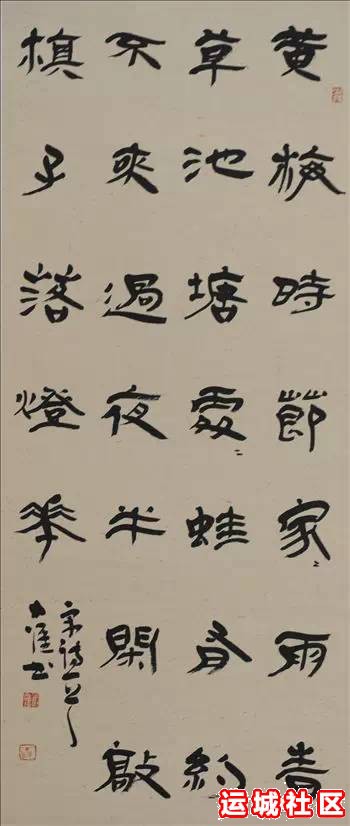 黄梅時節家〻雨青
草池塘處〻蛙有約
不來過夜半閑敲
棋子落燈花
宋詩一首
运城社区